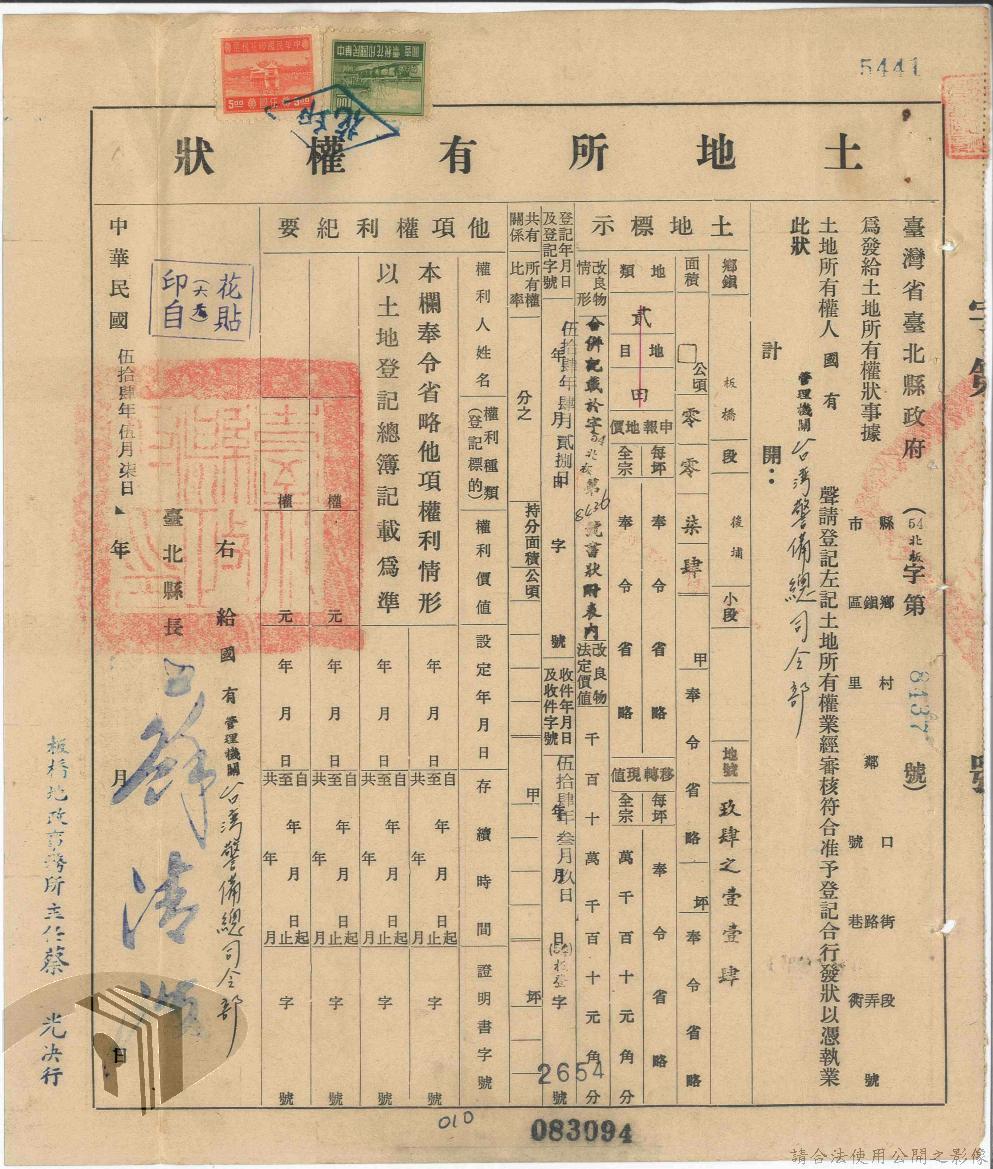 5441
土地所有權狀
臺灣省臺北縣政府（54北板字第8437號）
為發給土地所有權狀事據
縣市 鄉鎮區 村里 鄰 號 口 街路巷 段弄衖 號
土地所有權人 國有 管理機關 台灣警備總司令部 聲請登記左記土地所有權業經審核符合准予登記合行發狀以憑執業
此狀
計開：
土地標示
鄉鎮 板橋 段 後埔 小段 地號 玖肆之壹壹肆
面積 公頃 零零柒肆 甲 奉令省略 坪 奉令省略
地類 貳 地目 田
申報地價 每坪 奉令省略 全宗 奉令省略
移轉現值 每坪 奉令省略 全宗 萬千百十元角分
改良物情形 合併記載於字54北板第8436號書狀附表內
改良物法定價值 千百十萬千百十元角分
登記年月日及登記字號 伍拾肆年肆月貳捌日 字 號
收件年月日及收件字號 伍拾肆年叁月玖日 (54)板登字 2654 號
共有關係 所有權比率 分之 持分面積 公頃 甲 坪
他項權利紀要
權利人姓名 權利種類(登記標的) 權利價值 設定年月日 存續時間 證明書字號
本欄奉令省略他項權利情形
以土地登記總簿記載為準
權 元 年月日 自至共 年年 月月 日 起止月 字 號
權 元 年月日 自至共 年年 月月 日 起止月 字 號
右給 國有 管理機關 台灣警備總司令部
臺北縣長 蘇清波
花貼
印自
中華民國 伍拾肆年伍月柒日 年 月 日
板橋地政事務所主任蔡 光決行
010
083094
字第
號
5.00
請合法使用公開之影像